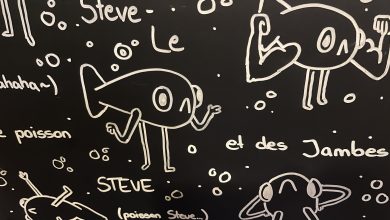 Steve
Le
ahaha~)
poisson
et des Jambes
STEVE
(poisson Steve...)